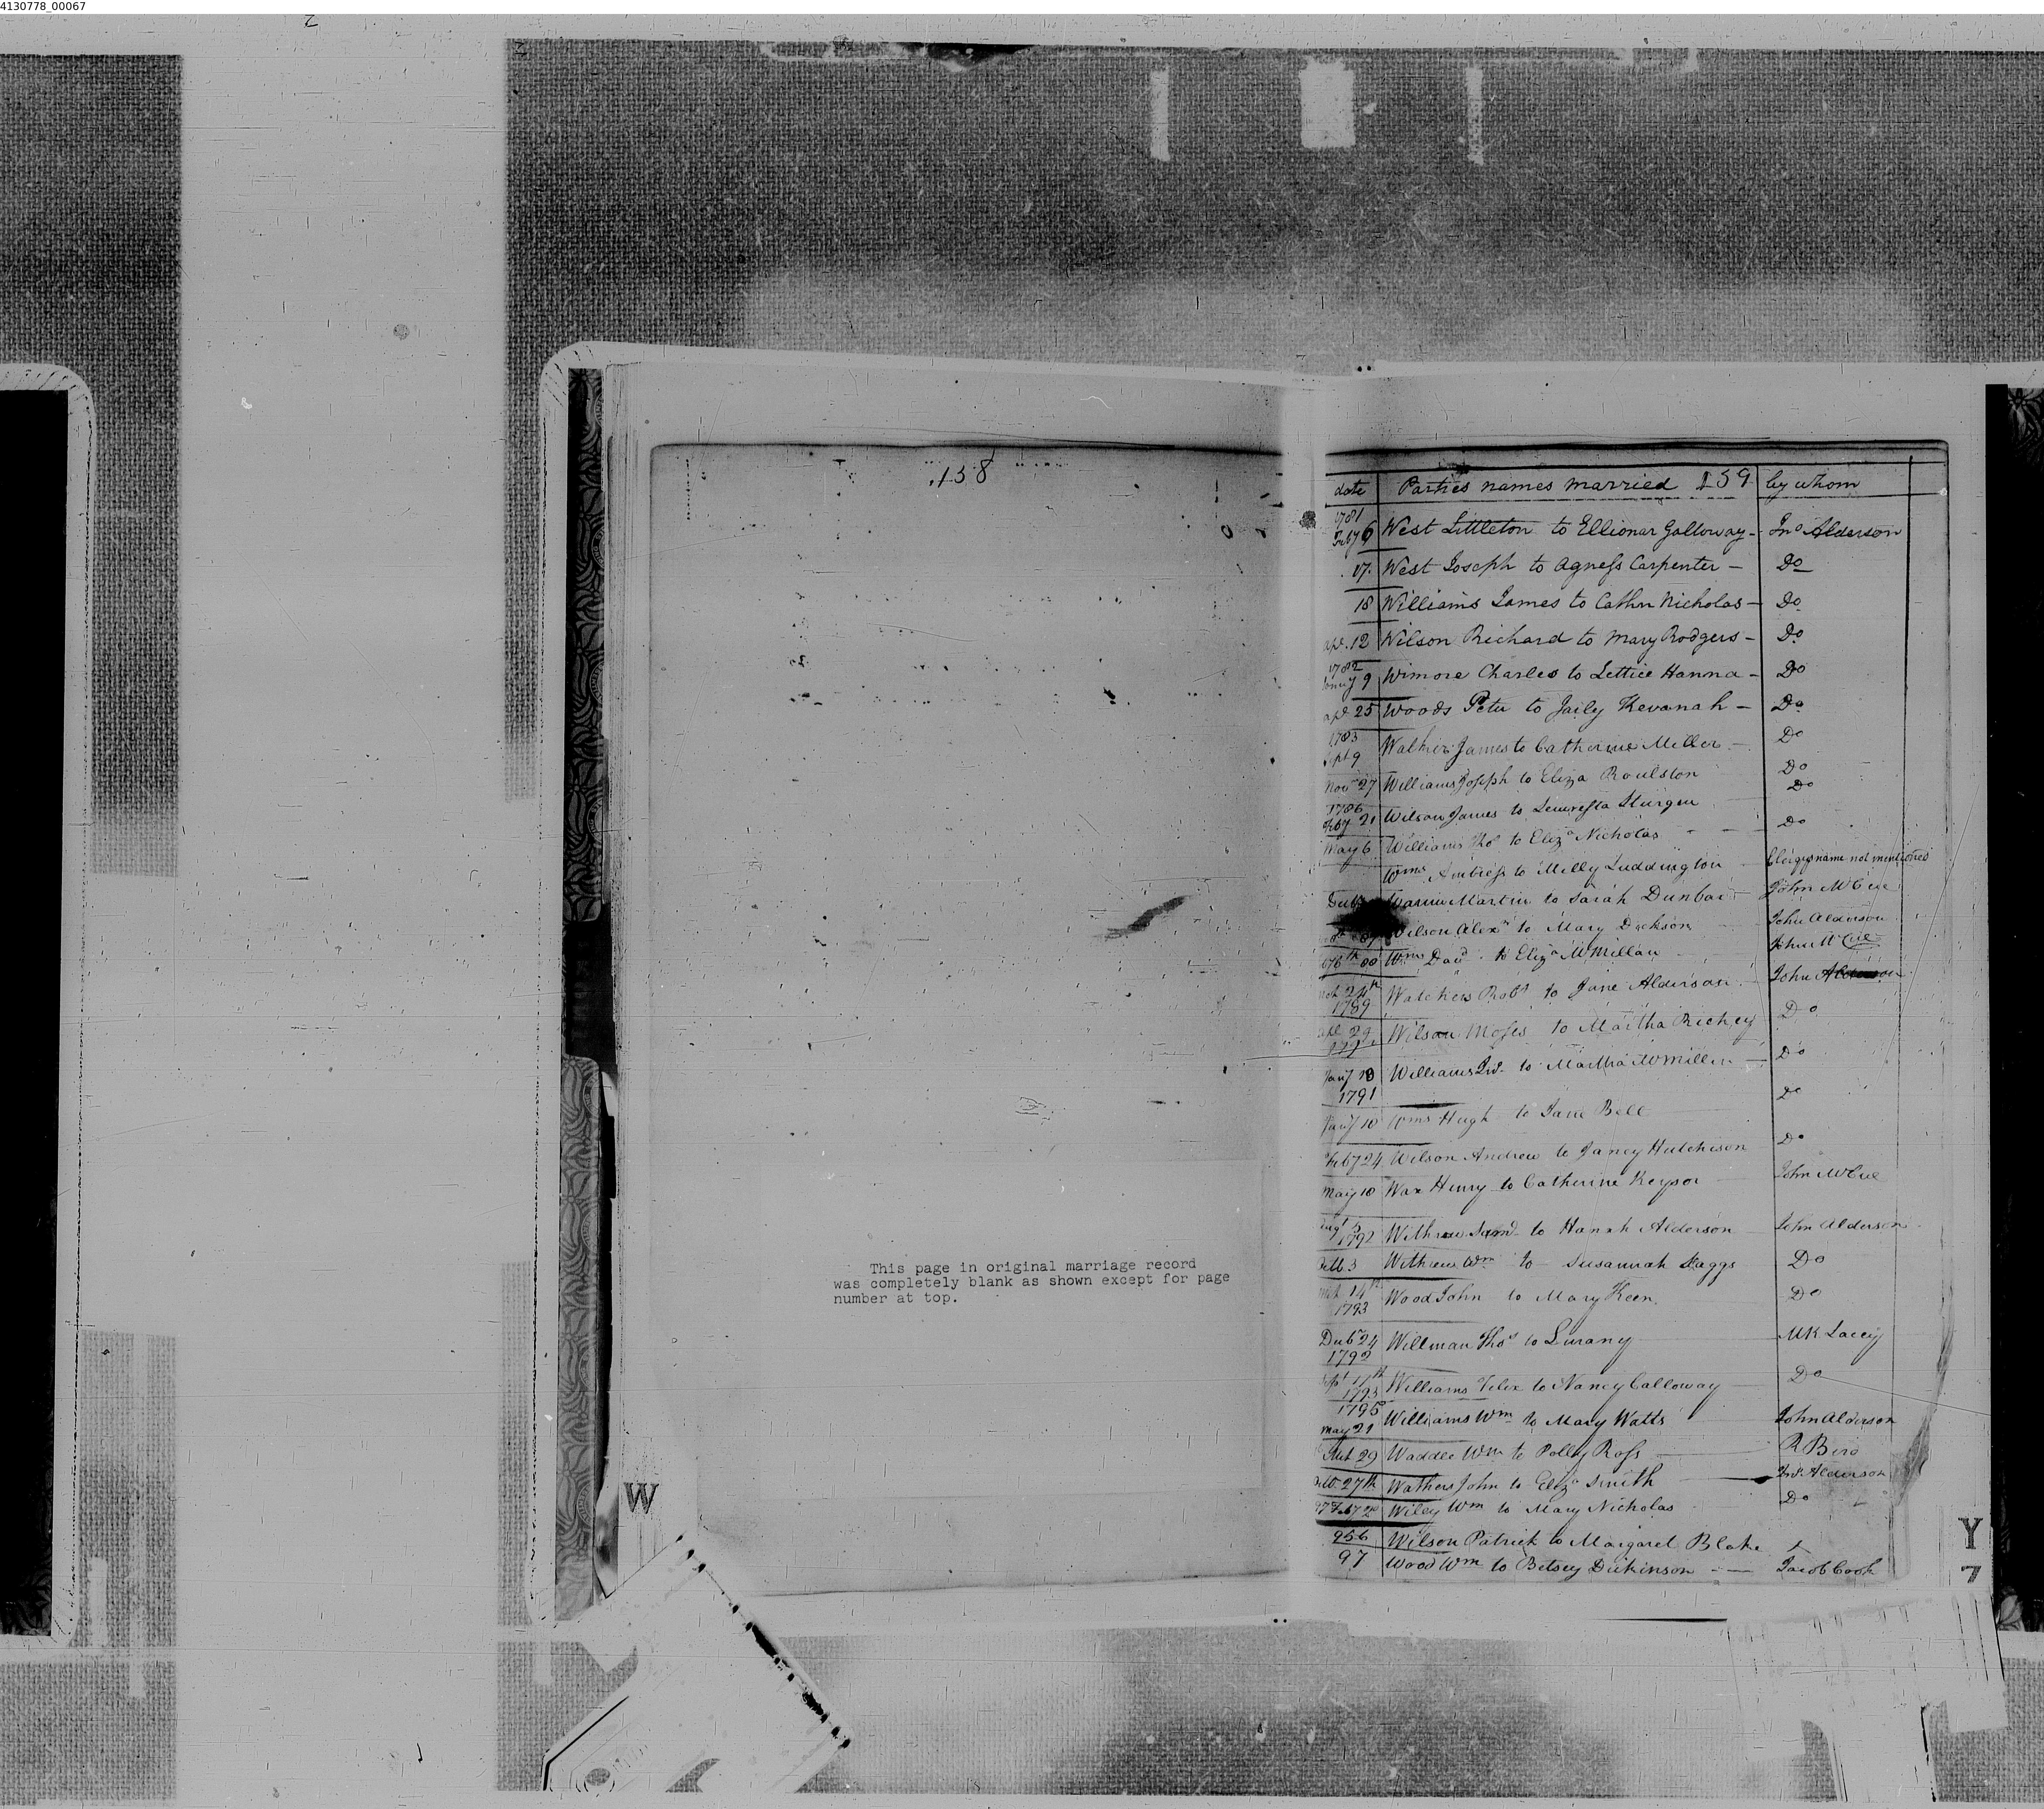 4130778_00067
158
This page in original marriage record
was completely blank as shown except for page
number at top.
W
date Parties names married 159 by whom
1781
Feby 6 West Littleton to Ellionar Galloway - Jno Alderson
17 West Joseph to Agness Carpenter - Do
18 Williams James to Cathrn Nicholas - Do
apl. 12 Wilson Richard to Mary Rodgers - Do
1782
9 Wimore Charles to Lettice Hanna - Do
apl 25 Woods Peter to Jaily Kevanah - Do
1783
Sept 9 Walker James to Catherine Miller - Do
Novr 27 Williams Joseph to Eliza Roulston Do
1786 Do
Feby 21 Wilson James to Sturgen
May 6 Williams Thos to Eliza Nicholas Do
Wms Ambress to Milly Luddington Clergys name not mentioned
Martin to Sarah Dunbar John McCue
Wilson Alexr to Mary Dickson John Alderson
Wms Davd to Eliza McMillan John McCue
24th
1789 Watchers Robt to Jane Alderson John Alderson
apl 29 Wilson Moses to Martha Richey Do
Jany 18 Williams Jno to Martha McMillin Do
1791
Jany 10 Wms Hugh to Jane Bell Do
Feby 24 Wilson Andrew to Janey Hutchison Do
May 10 Wax Henry to Catherine Keysor John McCue
Augt 5
1792 Withrow Saml to Hannh Alderson John Alderson
3 Withrow Wm to Susannah Skaggs Do
14th
1793 Wood John to Mary Keen Do
Decbr 24
1792 Willman Thos to Lurany Mk Lacey
Sept 17th
1793 Williams Felix to Nancy Calloway Do
1795
May 21 Williams Wm to Mary Watts John Alderson
29 Waddle Wm to Polly Ross R Bird
27th Wathers John to Eliza Smith Jno. Alderson
Wiley Wm to Mary Nicholas Do
956 Wilson Patrick to Margaret Blake
97 Wood Wm to Betsey Dickinson - Jacob Cook
Y
Z